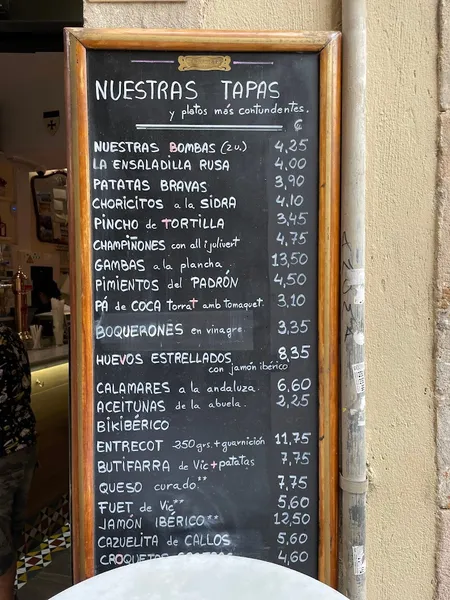 NUESTRAS TAPAS
y platos más contundentes.
€
NUESTRAS BOMBAS (2u.) 4,25
LA ENSALADILLA RUSA 4,00
PATATAS BRAVAS 3,90
CHORICITOS a la SIDRA 4,10
PINCHO de TORTILLA 3,45
CHAMPIÑONES con all i jolivert 4,75
GAMBAS a la plancha 13,50
PIMIENTOS del PADRÓN 4,50
PÁ de COCA torrat amb tomaquet. 3,10
BOQUERONES en vinagre 3,35
HUEVOS ESTRELLADOS 8,35
con jamón ibérico
CALAMARES a la andaluza. 6,60
ACEITUNAS de la abuela. 2,25
BIKIBÉRICO
ENTRECOT 250 grs. + guarnición 11,75
BUTIFARRA de Vic + patatas 7,75
QUESO curado.** 7,75
FUET de Vic** 5,60
JAMÓN IBÉRICO** 12,50
CAZUELITA de CALLOS 5,60
CROQUETAS 4,60